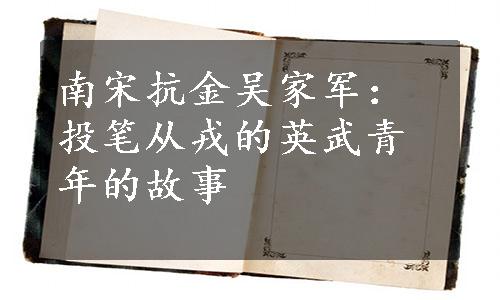 南宋抗金吴家军：
投笔从戎的英武青
年的故事